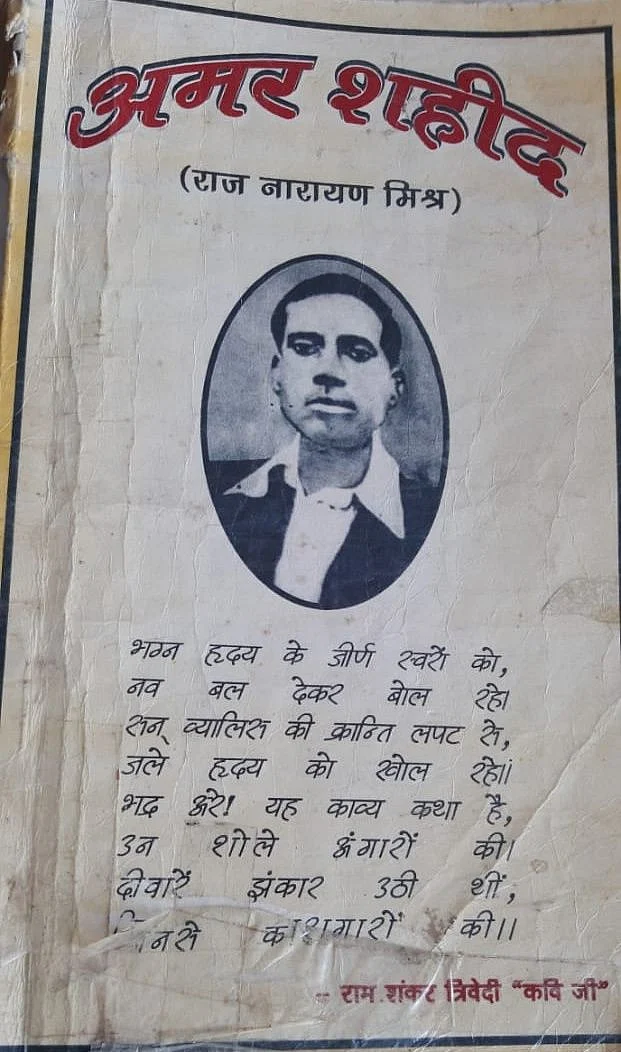 अमर शहीद
(राज नारायण मिश्र)
भग्न हृदय के जीर्ण स्वरों को,
नव बल देकर बोल रहे।
सन् ब्यालिस की क्रान्ति लपट से,
जले हृदय को खोल रहे॥
भद्र अरे! यह काव्य कथा है,
उन शोले अंगारों की।
दीवारें झंकार उठी थीं,
की।।
- राम शंकर त्रिवेदी "कवि जी"